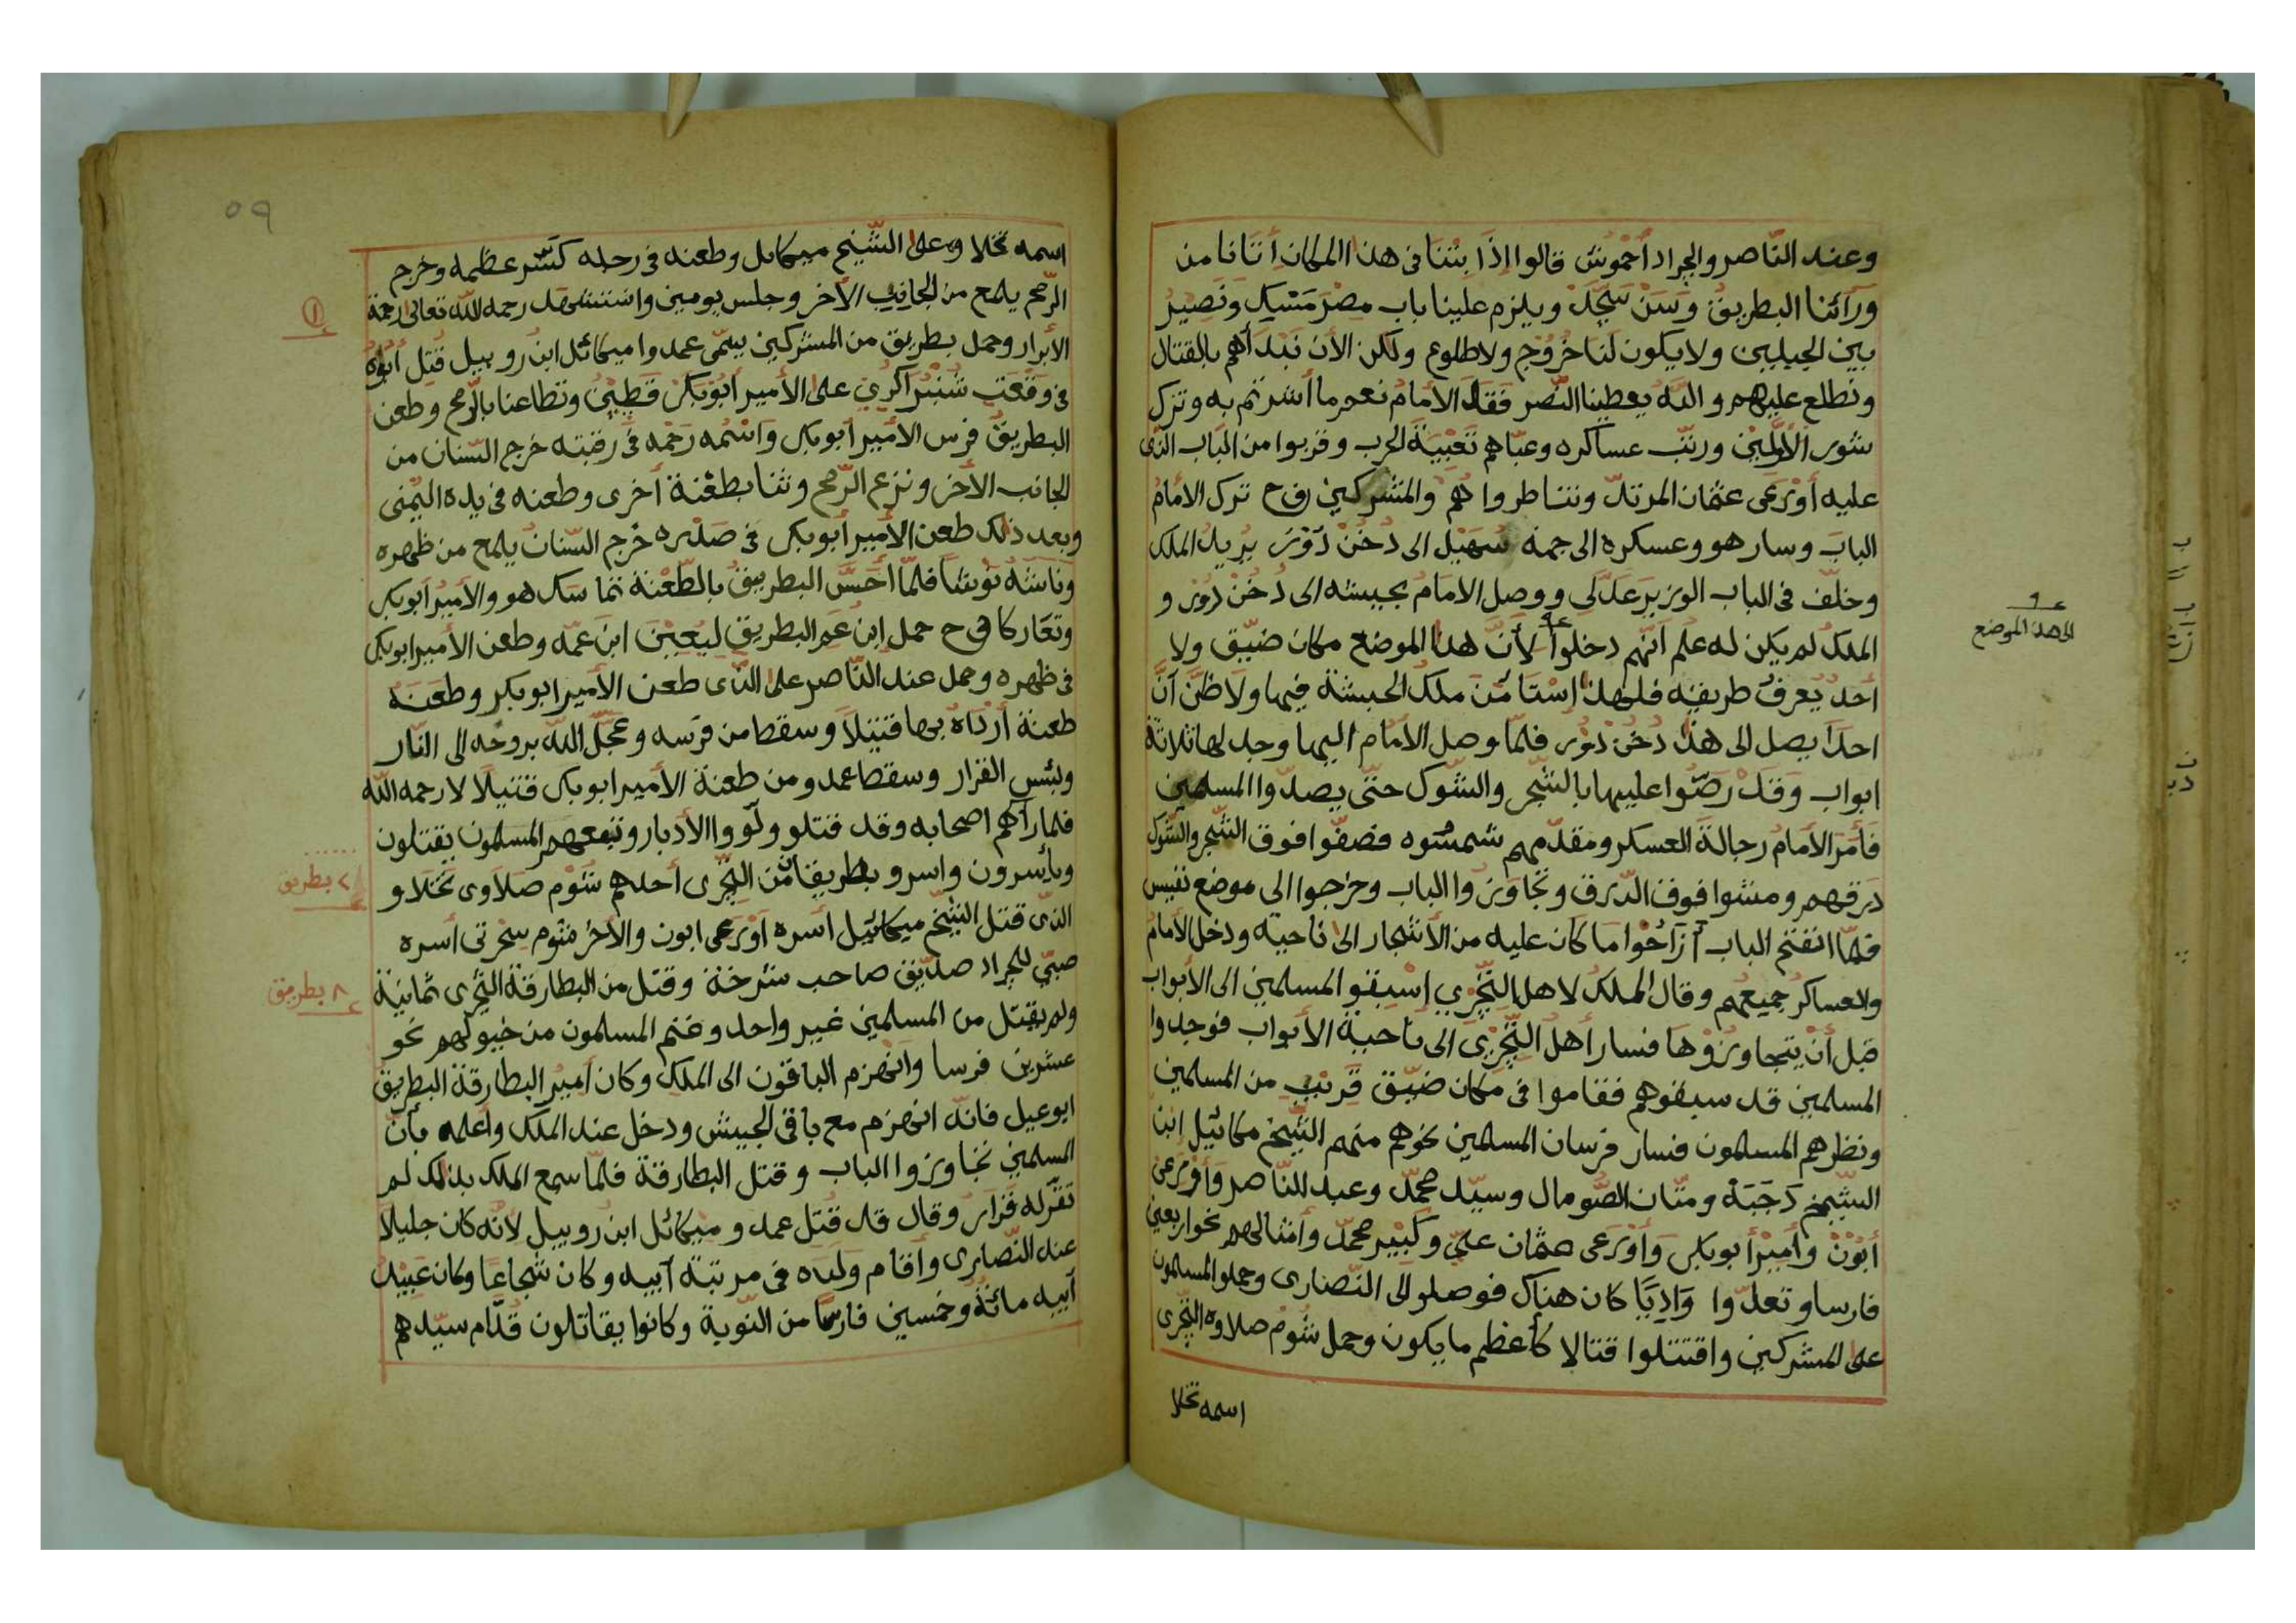 وعند النّاصر والجراد أحموش قالوا اذا بتنا فى هذا المكان أتانا من
ورآئنا البطريق وسن سجد ويلزم علينا باب مصر مسك ونصير
بين الجبلين ولا يكون لنا خروج ولا طلوع ولكن الأن نبدأهم بالقتال
ونطلع عليهم والله يعطينا النّصر فقال الأمام نعم ما أشرتم به وترك
شور الأوّلين ورتّب عساكره وعبّاهم تعبية الحرب وقربوا من الباب الذى
عليه أورعى عثمان المرتدّ وتناطروا هم والمشركين فح ترك الأمام
الباب وسار هو وعسكره الى جهة سهيل الى دخن دور يريد الملك
وخلّف فى الباب الوزير عدلى ووصل الامام بجيشه الى دخن دور و
الملك لم يكن له علم أنّهم دخلوا لأنّ هذا الموضع مكان ضيّق ولا
الى هذا الموضع
أحد يعرف طريقه فلهذا إستأمن ملك الحبشة فيها ولا ظنّ أنّ
احدا يصل الى هذا دخن دور فلمّا وصل الأمام اليها وجد لها ثلاثة
ابواب وقد رضّوا عليها بالشجر والشوك حتّى يصدّوا المسلمين
فأمر الأمام رجالة العسكر ومقدّمهم شمسوه فصفّوا فوق الشّجر والشّوك
درقهم ومشوا فوق الدّرق وتجاوزوا الباب وخرجوا الى موضع نفيس
فلمّا انفتح الباب أزاحوا ما كان عليه من الأشجار الى ناحية ودخل الأمام
والعساكر جميعهم وقال الملك لاهل التّجرى إسبقو المسلمين الى الأبواب
قبل أن يتجاوزوها فسار أهل التّجرى الى ناحية الأبواب فوجدوا
المسلمين قد سبقوهم فقاموا فى مكان ضيّق قريب من المسلمين
ونظرهم المسلمون فسار فرسان المسلمين نحوهم منهم الشّيخ مكائيل ابن
الشّيخ دجبة ومتّان الصّومال وسيّد محمّد وعبد النّاصر وأورعى
أبون وأمير أبوبكر وأورعى عثمان علىّ وكبير محمّد وامثالهم نحو اربعين
فارسا وتعدّوا واديّا كان هناك فوصلو الى النّصارى وحملو المسلمون
على المشركين واقتتلوا قتالا كأعظم ما يكون وحمل شوم صلاوه التّجرى
اسمه تخلا
٥٩
اسمه تخلا وعلى الشّيخ ميكايل وطعنه فى رجله كسّر عظمه وخرج
الرّمح يلمع من الجانب الأخر وجلس يومين واستشهد رحمه الله تعالى رحمة
الأبرار وحمل بطريق من المشركين يسمّى عمدوا ميكائل ابن روبيل قتل أبوه
فى وقعت شنبر اكرى على الأمير أبوبكر قطين وتطاعنا بالرّمح وطعن
البطريق فرس الأمير أبوبكر واسمه رحمه فى رقبته خرج السّنان من
الجانب الأخر ونزع الرّمح وثنا بطعنة أخرى وطعنه فى يده اليمنى
وبعد ذلك طعن الأمير أبوبكر فى صدره خرج السّنان يلمع من ظهره
وناشه نوشا فلمّا أحسّ البطريق بالطّعنة تماسك هو والأمير أبوبكر
وتعاركا فح حمل ابن عم البطريق ليعين ابن عمّه وطعن الأمير ابوبكر
فى ظهره وحمل عند النّاصر على الذّى طعن الأمير ابوبكر وطعنه
طعنة أرداه بها قتيلا وسقط من فرسه وعجّل الله بروحه الى النّار
وبئس القرار وسقط عمدو من طعنة الأمير ابوبكر قتيلا لا رحمه الله
فلما رآهم اصحابه وقد قتلو ولّووا الأدبار وتبعهم المسلمون يقتلون
ويأسرون واسرو بطريقا من التّجرى أحدهم شوم صلاوى تخلا و
٢ بطريق
الذى قتل الشّيخ ميكائيل أسره أورعى ابون والأخر شوم سحرتى أسره
صبىّ للجراد صدّيق صاحب شرخة وقتل من البطارقة التّجرى ثمانية
٨ بطريق
ولم يقتل من المسلمين غير واحد وغنم المسلمون من خيولهم نحو
عشرين فرسا وانهزم الباقون الى الملك وكان أمير البطارقة البطريق
ابوعيل فانّه انهزم مع باقى الجيش ودخل عند الملك واعلمه بأنّ
المسلمين تجاوزوا الباب وقتل البطارقة فلمّا سمع الملك بذلك لم
تقرّ له قرار وقال قد قتل عمد وميكائل ابن روبيل لأنّه كان جليلا
عند النّصارى وأقام ولده فى مرتبة أبيه وكان شجاعا وكان عبيد
أبيه مائة وخمسين فارسا من النّوبة وكانوا يقاتلون قدّام سيّدهم